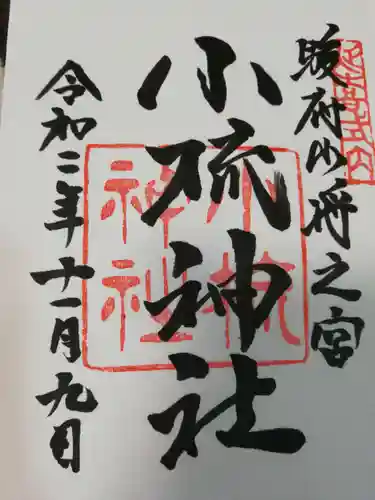 駿府少将之宮
小梳神社
小梳
神社
令和二年十一月九日